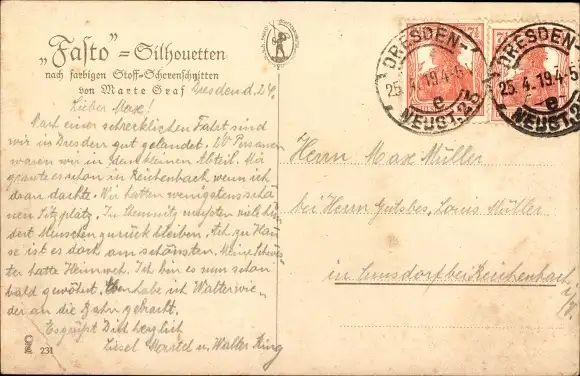 „Fasto"=Silhouetten
nach farbigen Stoff-Scherenschnitten
von Marte Graf
Dresden d. 24.
Lieber Max!
Nach einer schrecklichen Fahrt sind
wir in Dresden gut gelandet. 20 Personen
waren wir in dem kleinen Abteil. Mir
graute es schon in Reichenbach wenn ich
dran dachte. Wir hatten wenigstens schö-
nen Sitzplatz. In Chemnitz mußten viele hun-
dert Menschen zurück bleiben. Ach zu Hau-
se ist es doch am schönsten. Meine Schwes-
ter hatte Heimweh. Ich bin es nun schon
bald gewöhnt. habe ich Walter wie-
der an die Bahn gebracht.
Es grüßt Dich herzlich
Liesel Martel u. Walter
231
7½
7½
DRESDEN-
25.4.19.4-5
e
NEUST.25
DRESDEN-
25.4.19.4-5
e
NEUST.25
Herrn Max Müller
bei Herrn Gutsbes. Louis Müller
in bei Reichenbach
i/V.